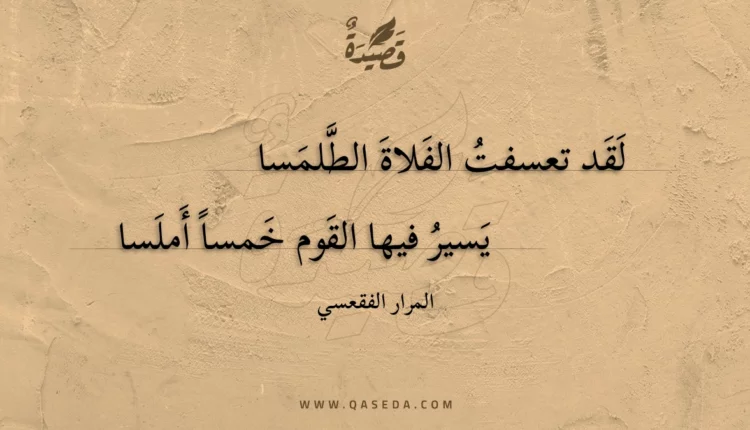 قَصِيدَةٌ
لَقَد تعسفتُ الفَلاةَ الطَّلمَسا
يَسيرُ فيها القَوم خَمساً أَملَسا
المرار الفقعسي
WWW.QASEDA.COM